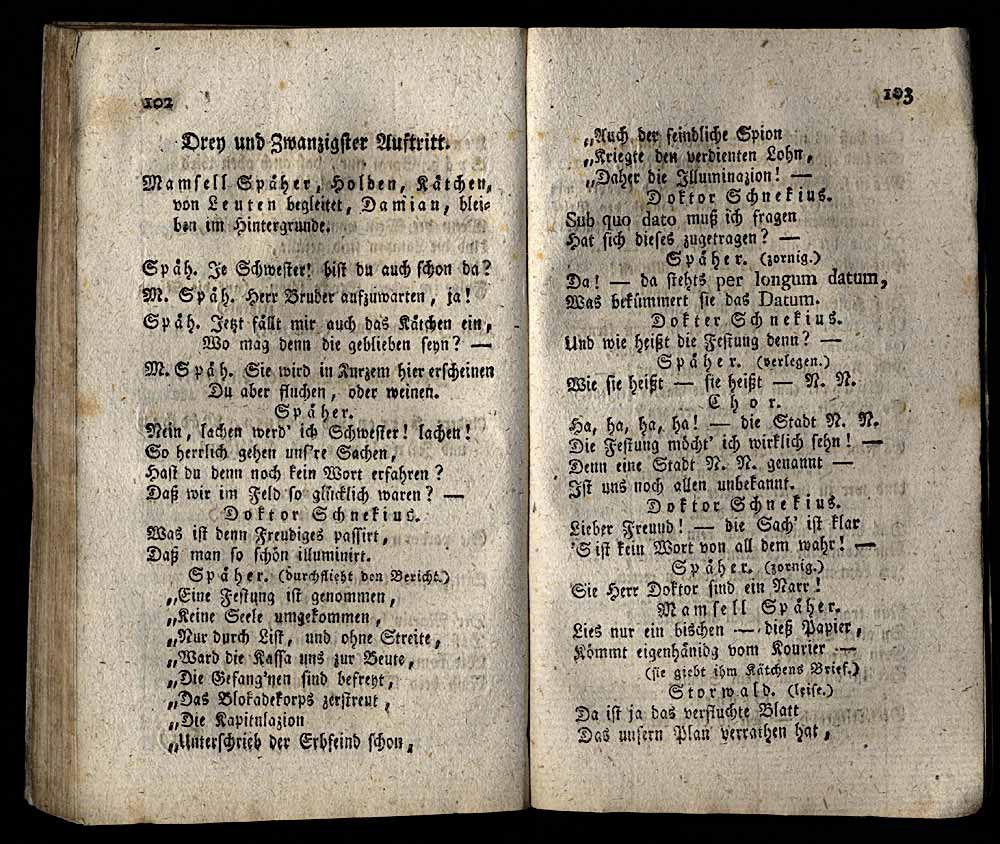 102
Drey und Zwanzigster Auftritt.
Mamsell Späher, Holden, Kätchen,
von Leuten begleitet, Damian, blei-
ben im Hintergrunde.
Späh. Je Schwester! bist du auch schon da?
M. Späh. Herr Bruder aufzuwarten, ja!
Späh. Jetzt fällt mir auch das Kätchen ein,
Wo mag denn die geblieben seyn? —
M. Späh. Sie wird in Kurzem hier erscheinen
Du aber fluchen, oder weinen.
Späher.
Nein, lachen werd' ich Schwester! lachen!
So herrlich gehen uns're Sachen,
Hast du denn noch kein Wort erfahren?
Daß wir im Feld so glücklich waren? —
Doktor Schnekius.
Was ist denn Freudiges passirt,
Daß man so schön illuminirt.
Späher. (durchflieht den Bericht.)
„Eine Festung ist genommen,
„Keine Seele umgekommen,
„Nur durch List, und ohne Streite,
„Ward die Kassa uns zur Beute,
„Die Gefang'nen sind befreyt,
„Das Blokadekorps zerstreut,
„Die Kapitulazion
„Unterschrieb der Erbfeind schon,
103
„Auch der feindliche Spion
„Kriegte den verdienten Lohn,
„Daher die Illuminazion! —
Doktor Schnekius.
Sub quo dato muß ich fragen
Hat sich dieses zugetragen? —
Späher. (zornig.)
Da! — da stehts per longum datum,
Was bekümmert sie das Datum.
Dokter Schnekius.
Und wie heißt die Festung denn? —
Späher. (verlegen.)
Wie sie heißt — sie heißt — N. N.
Chor.
Ha, ha, ha, ha! — die Stadt N. N.
Die Festung möcht' ich wirklich sehn! —
Denn eine Stadt N. N. genannt —
Ist uns noch allen unbekannt.
Doktor Schnekius.
Lieber Freuud! — die Sach' ist klar
'S ist kein Wort von all dem wahr! —
Späher. (zornig.)
Sie Herr Doktor sind ein Narr!
Mamsell Späher.
Lies nur ein bischen — dieß Papier,
Kömmt eigenhänidg vom Kourier —
(sie giebt ihm Kätchens Brief.)
Storwald. (leise.)
Da ist ja das verfluchte Blatt
Das unsern Plan verrathen hat,